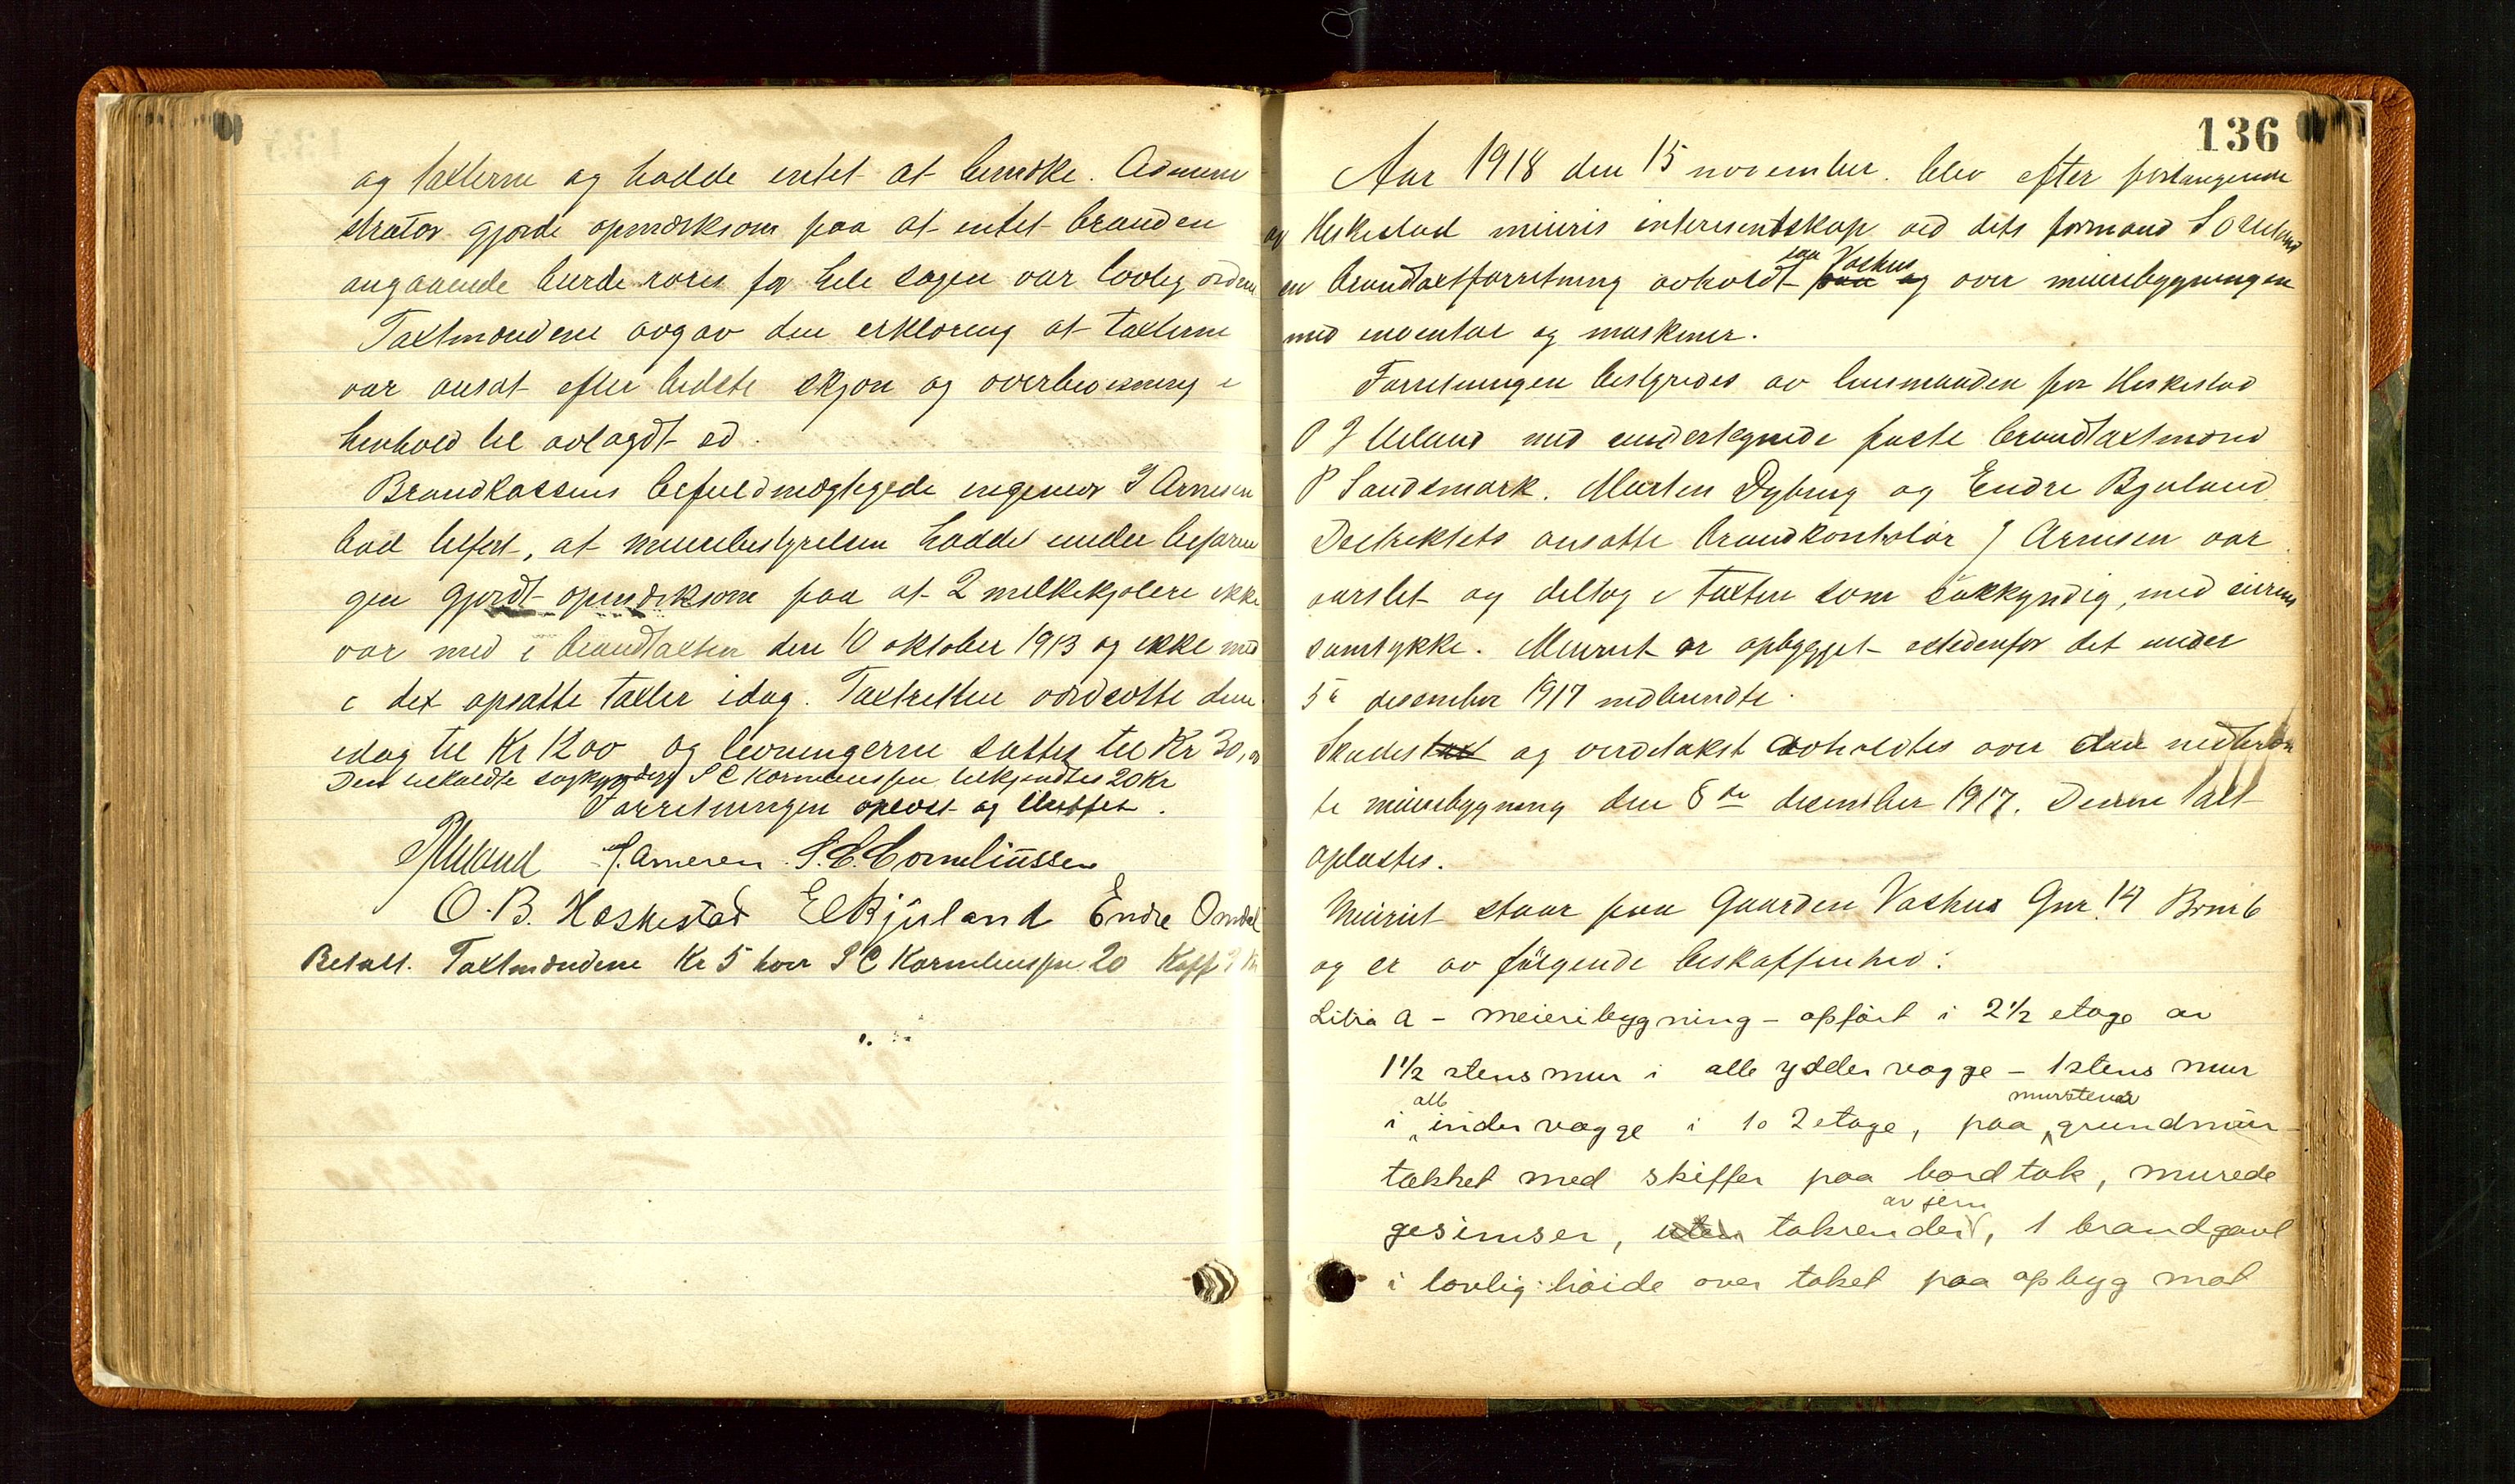 og taxterne og hadde intet at bemærke. Admini
strator gjorde opmærksom paa at intet branden
angaaende burde røres før hele sagen var lovlig ordnet
Taxtmændene avgav den erklæring at taxterne
var ansat efter bedste skjøn og overbevisning i
henhold til avlagdt ed.
Brandkassens befuldmægtigede ingeniør J Arnesen
bad tilført, at meieribestyrelsen hadde under befarin
gen gjordt opmærksom paa at 2 melkekjølere ikke
var med i brandtaxten den 10 oktober 1913 og ikke med
i det opsatte taxter idag. Taxtretten værdsatte dem
idag til Kr 1200 og levningerne sattes til Kr 30,00
Den tilkaldte sagkyndige S C Korneliussen tilkjendtes 20 Kr
Forretningen oplæst og sluttet.
J. Arnesen S. C. Corneliussen
O. B. Heskestad E Bjuland Endre Omdal
Betalt. Taxtmændene Kr 5 hver S C Korneliussen 20
136
Aar 1918 den 15 november. blev efter forlangende
av Heskestad meieris interesentskap ved dets formand S O Ueland
paa Vashus
en brandtaxtforretning avholdt paa og over meieribygningen
med inventar og maskiner.
Forretningen bestyredes av lensmanden for Heskestad
P J Ueland med undertegnede faste brandtaxtmænd
P Sandsmark. Morten Dybing og Endre Bjuland.
Distriktets ansatte brandkontrolør J Arnesen var
varslet og deltog i taxten som sakkyndig, med eierens
samtykke. Meieriet er opbygget istedenfor det under
5te desember 1917 nedbrændte.
Skades taxt og verditakst avholdtes over den nedbrænd
te meieribygning den 8de desember 1917. Denne taxt
oplæstes.
Meieriet staar paa Gaarden Vashus Gnr. 14 Brnr 6
og er av følgende beskaffenhed:
Litra a - meieribygning - opført i 2 1/2 etage av
1 1/2 stens mur i alle yddervægge - 1 stens mur
alle murstens
i indervægge i 1 o 2 etage, paa grundmur -
tækket med skiffer paa bordtak, murede
av jern
gesimser, uten takrender, 1 brandgavl
i lovlig høide over taket paa opbyg mot